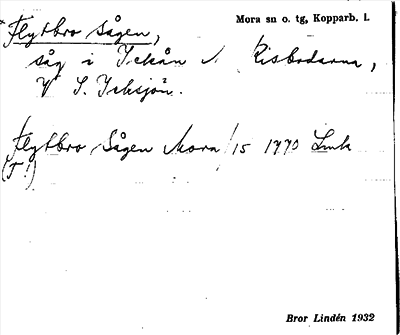 Flytbro Sågen,
Mora sn o. tg, Kopparb. l.
såg i Ickån N Risbodarna,
V S. Icksjön.
Flytbro Sågen Mora /15 1770 Lmk
(F!)
Bror Lindén 1932